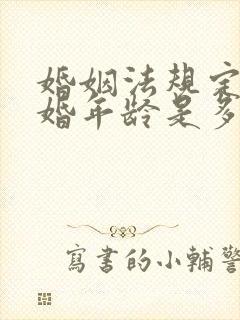 婚姻法规定
婚年龄是多
寫書的小輔警